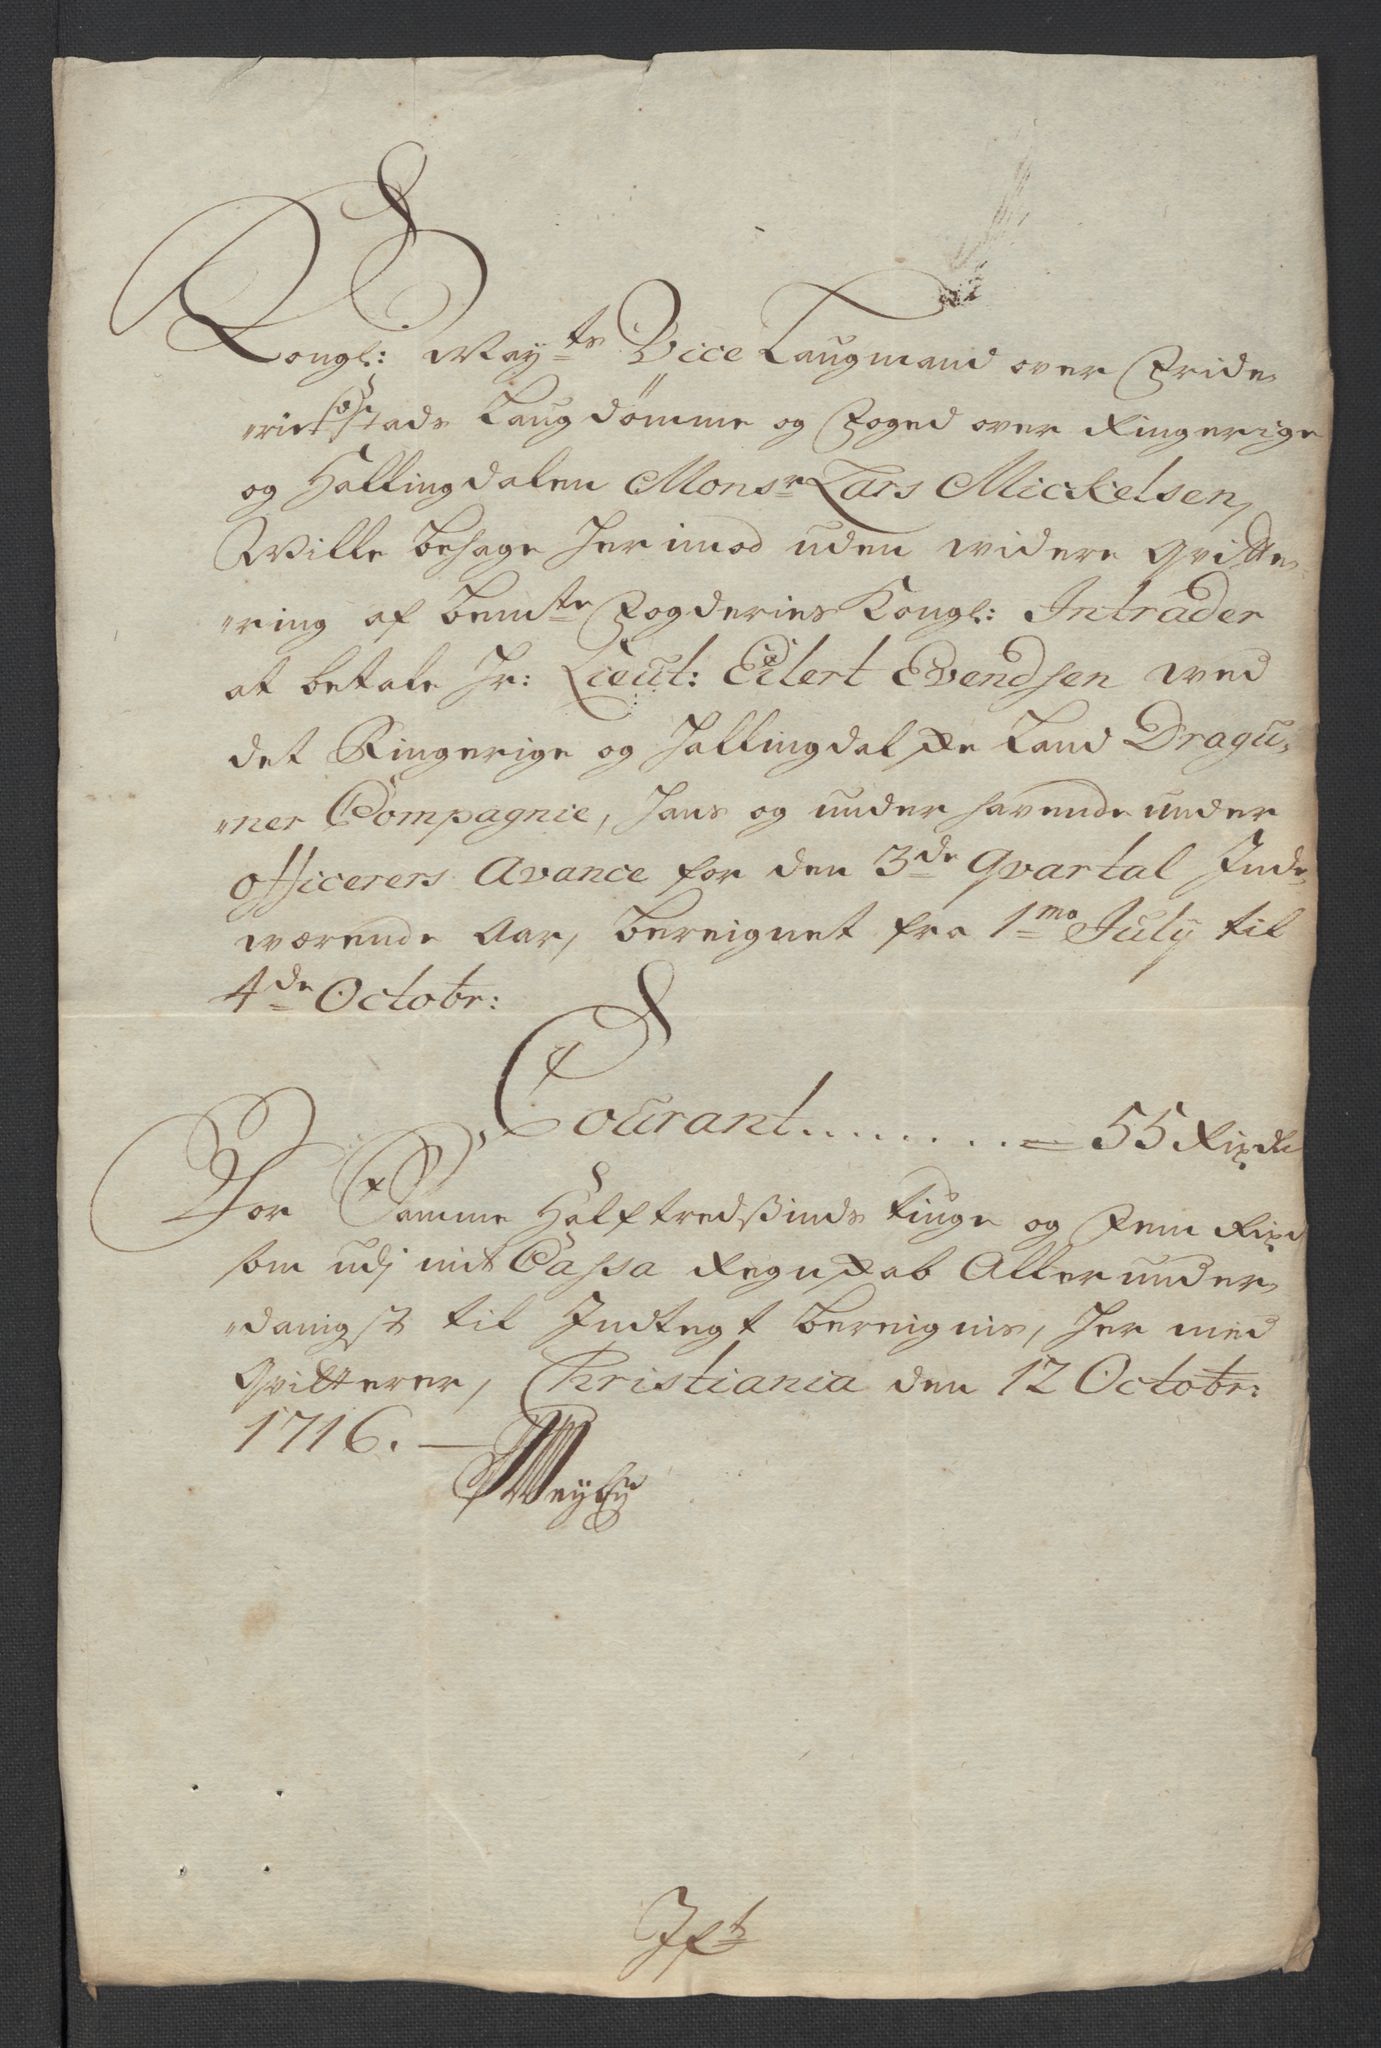 Kongl: May:ts Vice Laugmand over Fride„
„richstads Laugdømme og Foged over Ringerige
og Hallingdalen Monsr Lars Mickelsen,
Wille behage herimod uden widere qvitte„
„ring af bemte Fogderies Kongl: Intrader
at betale Hr: Lieut: Eilert Evendsen wed
det Ringerige og Hallingdalske Land Dragu„
„ner Compagnie, hans og underhavende under
officerers Avance for den 3de qvartal Inde„
wærende Aar, bereignet fra 1mo July til
4de Octobr:
Courant......... = 55 Rixdr
For Samme Halftredsinds tiuge og Fem Rixd
som udj mit Cassa Regnskab Allerunder„
„danigst til Indtegt bereignis, her med
qvitterer, Christiania den 12 Octobr:
1716. —